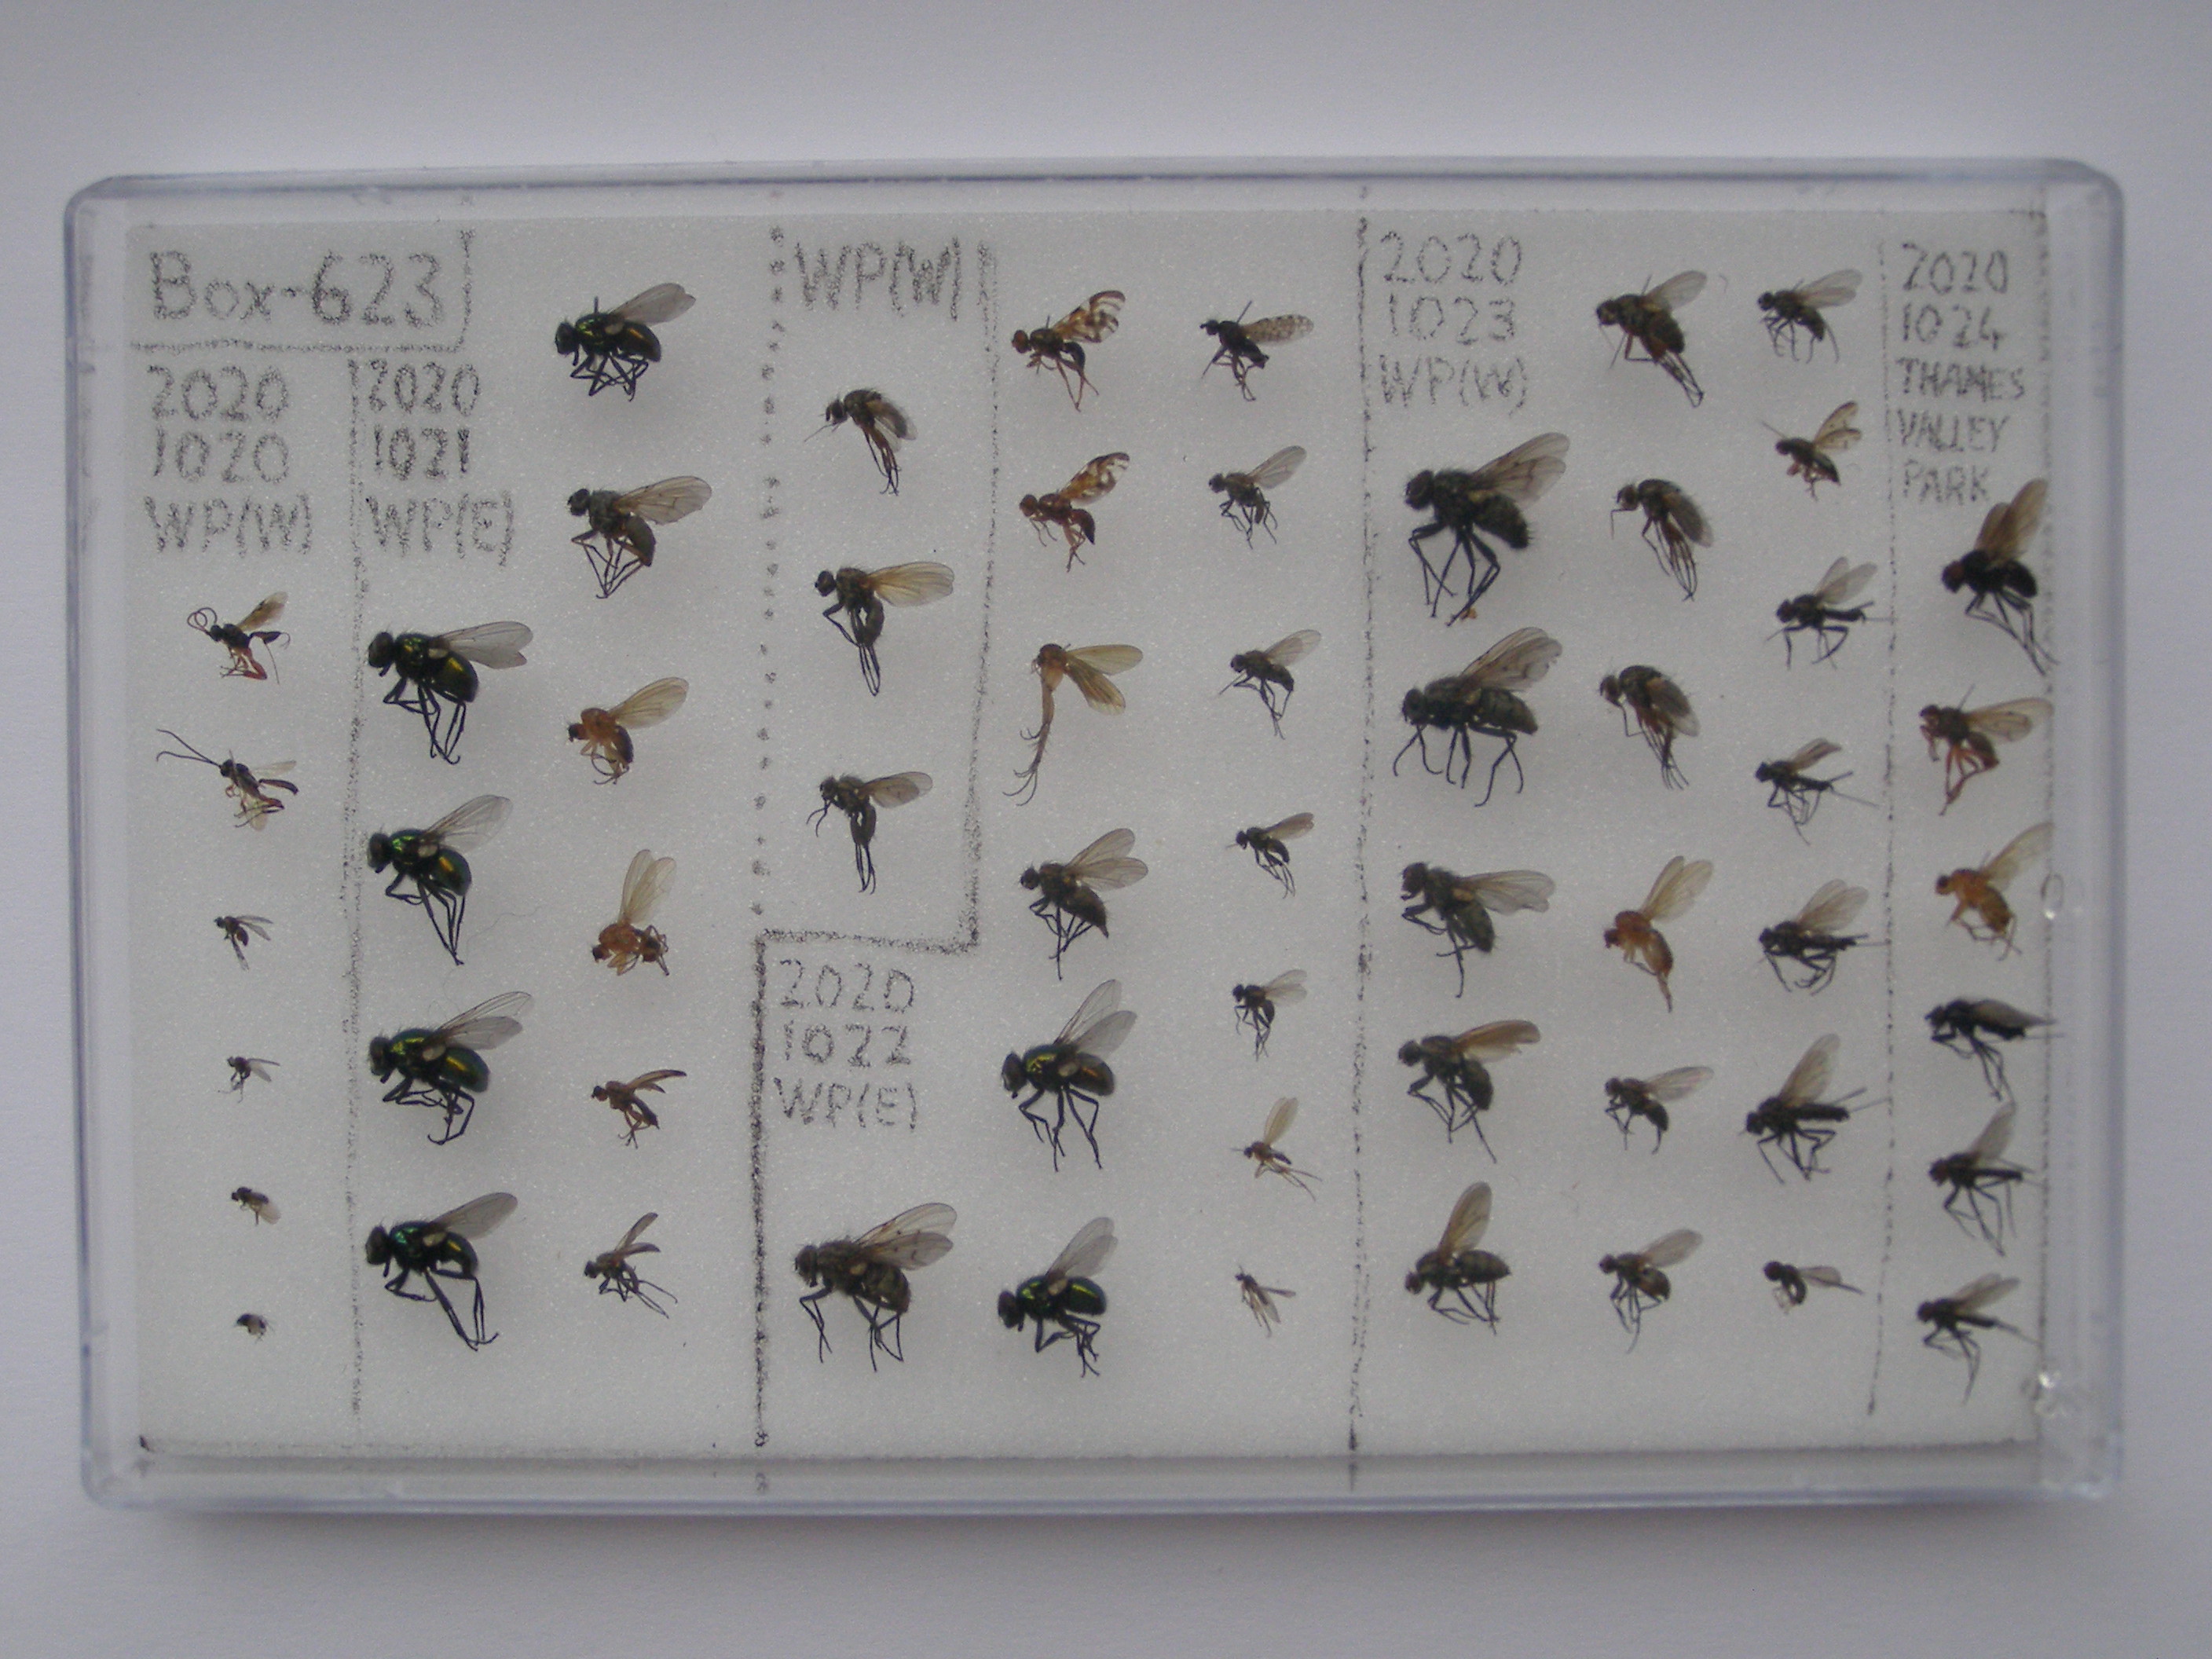 Box-623
2020
1020
WP(W)
2020
1021
WP(E)
WP(W)
2020
1022
WP(E)
2020
1023
WP(W)
2020
1024
THAMES
VALLEY
PARK